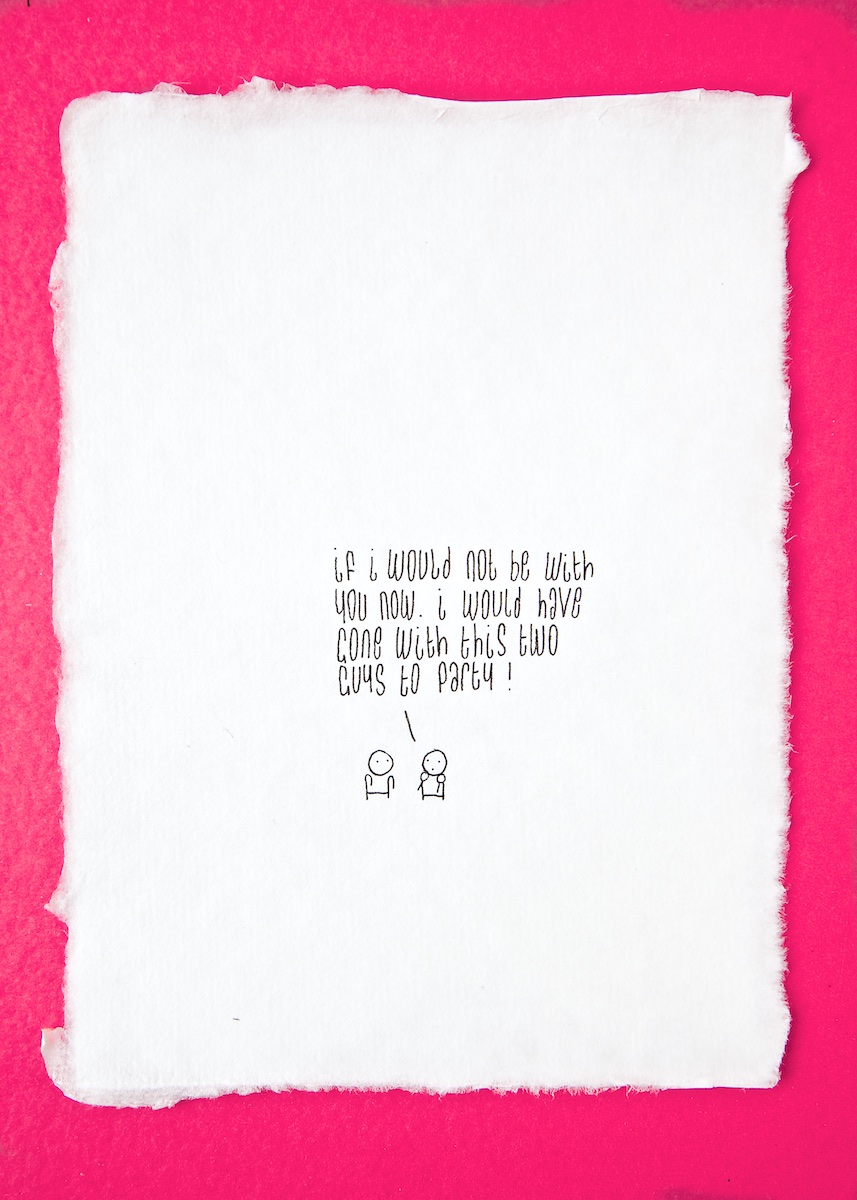 if i would not be with
you now. i would have
gone with this two
guys to party !